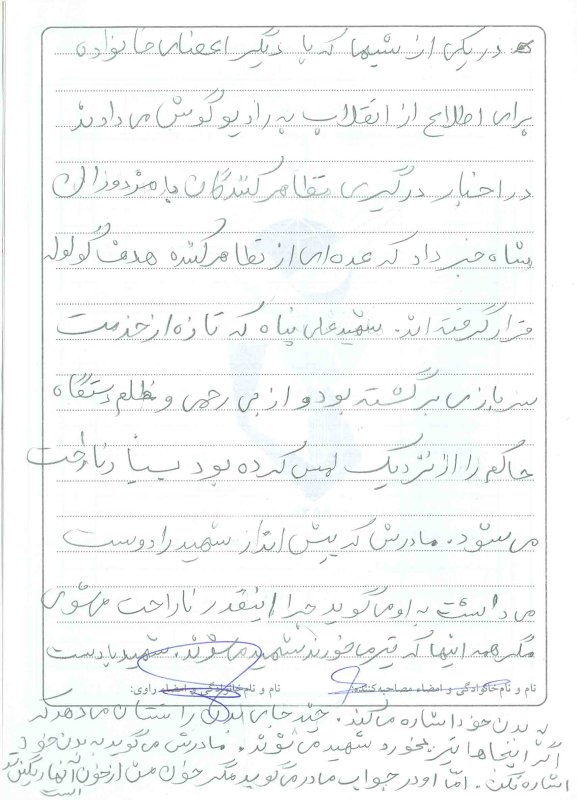 در یکی از شبها که با دیگر اعضای خانواده
برای اطلاع از انقلاب به رادیو گوش می دادند
در اخبار درگیری تظاهر کنندگان با مزدوران
شاه خبر داد که عده ای از تظاهر کننده هدف گولوله
قرار گرفته اند. شهید علی پناه که تازه از خدمت
سربازی برگشته بود و از بی رحمی و ظلم دستگاه
حاکم را از نزدیک لمس کرده بود بسیار ناراحت
می شود. مادرش که بیش از شهید را دوست
می داشت به او می گوید چرا اینقدر ناراحت می شوی
مگر همه اینها که تیر می خورند شهید می شوند. شهید با دست
نام و نام خانوادگی و امضاء مصاحبه کننده: نام و نام خانوادگی و امضاء راوی:
به بدن خود اشاره می کند. چند جای بدن را نشان می دهد که
اگر اینجاها تیر بخورد شهید می شوند. مادرش می گوید به بدن خود
اشاره نکن. امّا او در جواب مادر می گوید مگر خون من از خون آنها رنگین تر
است